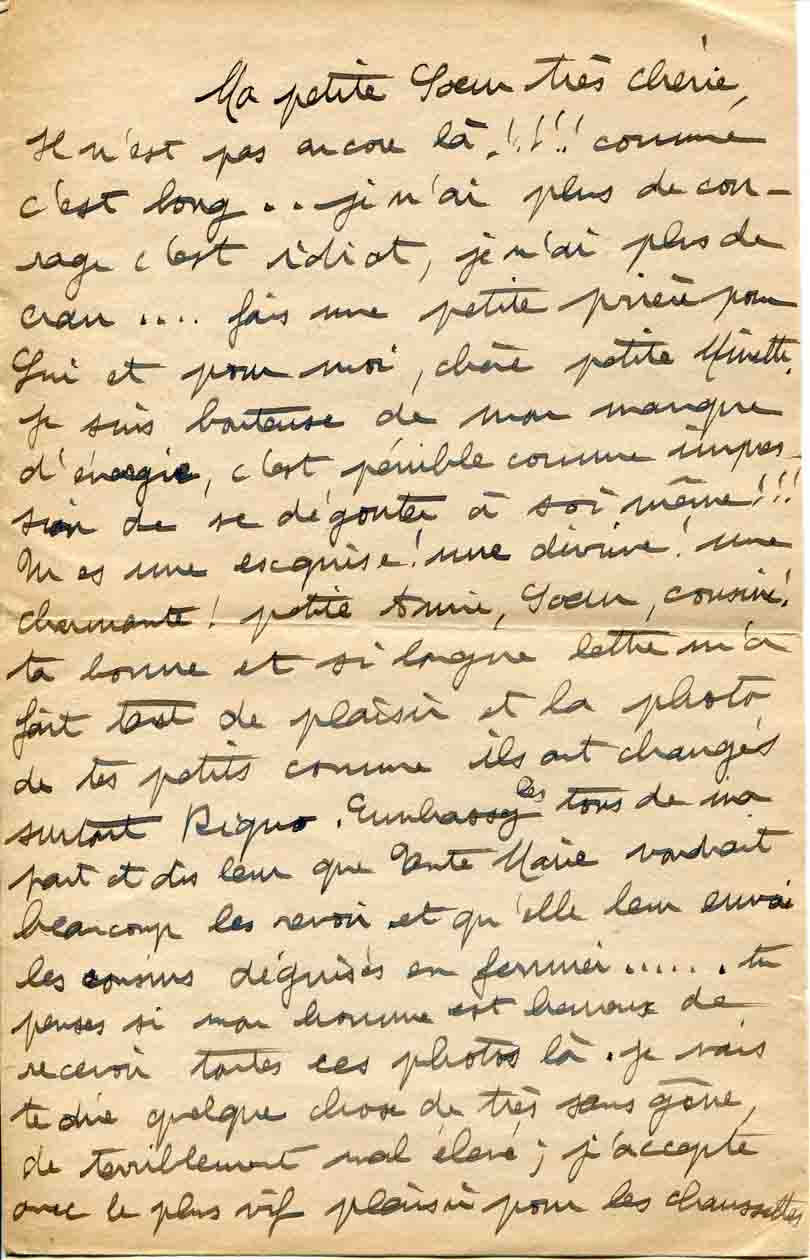 Ma petite Soeur très chérie,
Il n'est pas encore là.!!!!! comme
c'est long... je n'ai plus de cou-
rage c'est idiot, je n'ai plus de
cran .... fais une petite prière pour
Lui et pour moi, chère petite Minette.
Je suis honteuse de mon manque
d'énergie, c'est pénible comme impres-
sion de se dégouter à soi même!!!
Tu es une exquise! une divine! une
charmante! petite Amie, Soeur, cousine!
ta bonne et si longue lettre m'a
fait tant de plaisir et la photo
de tes petits comme ils ont changés
surtout . Embrasse les tous de ma
part et dis leur que Tante Marie voudrait
beaucoup les revoir et qu'elle leur envoie
les cousins déguisés en fermier...... tu
penses si mon homme est heureux de
recevoir toutes ces photos là. Je vais
te dire quelque chose de très sans gêne,
de terriblement mal élevé; j'accepte
avec le plus vif plaisir pour les chaussettes